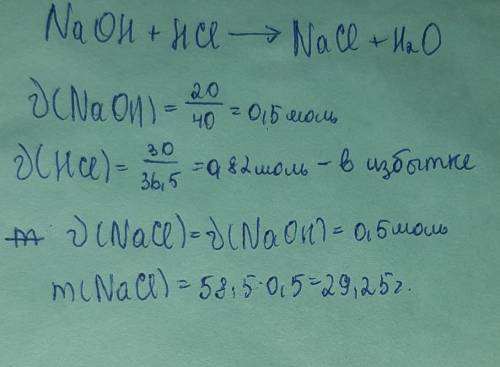 NaOH + HCl → NaCl + H₂O
ν(NaOH) = 20/40 = 0,5 моль
ν(HCl) = 30/36,5 = 0,82 моль - в избытке
m ν(NaCl) = ν(NaOH) = 0,5 моль
m(NaCl) = 58,5·0,5 = 29,25 г.